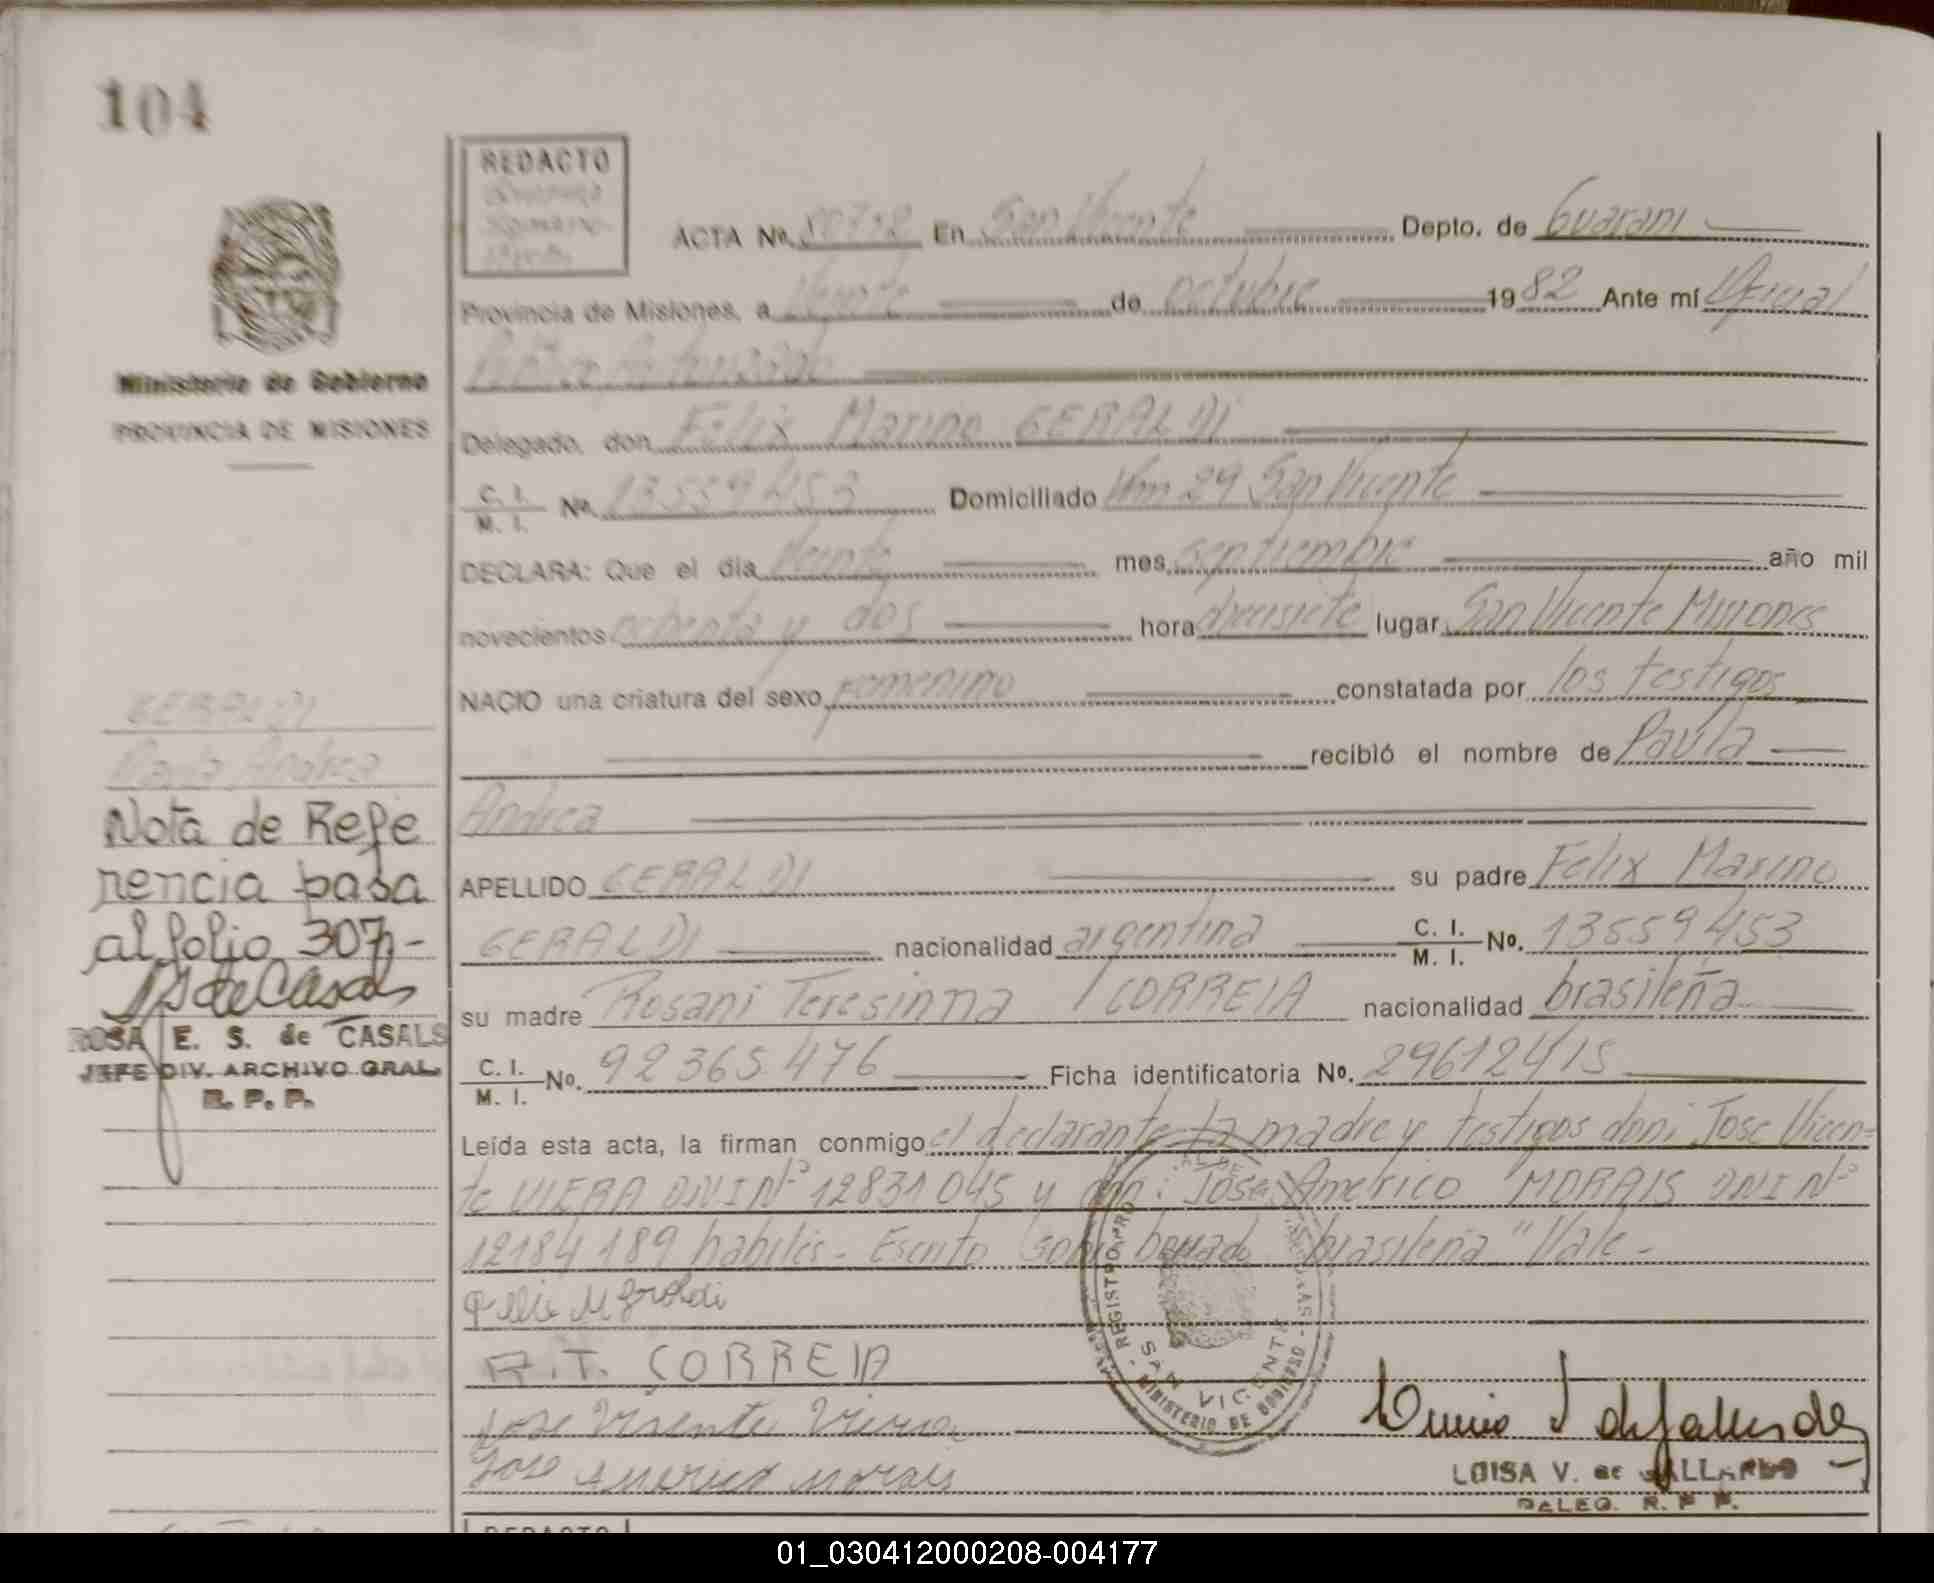 104
REDACTO
ACTA No. En San Vicente Depto. de Guaraní
Provincia de Misiones, a Veinte de octubre 1982 Ante mí Oficial
Público Autorizado
Delegado, don Felix Marino GERALDI
C. I. / M. I. No. 13559453 Domiciliado Km 29 San Vicente
DECLARA: Que el día Veinte mes septiembre año mil
novecientos ochenta y dos hora diecisiete lugar San Vicente Misiones
NACIO una criatura del sexo femenino constatada por los testigos
recibió el nombre de Paula
Andrea
APELLIDO GERALDI su padre Felix Marino
GERALDI nacionalidad argentina C. I. / M. I. No. 13559453
su madre Rosani Teresinna CORREIA nacionalidad brasileña
C. I. / M. I. No. 92365476 Ficha identificatoria No. 29612415
Leída esta acta, la firman conmigo el declarante la madre y testigos don: Jose Vicen=
te VIERA DNI Nº 12831045 y don: Jose Americo MORAIS DNI Nº
12184189 habiles - Escrito sobre borrado brasileña "Vale -
R.T. CORREIA
Jose Visente Viera
Jose Americo Morais
Ministerio de Gobierno
PROVINCIA DE MISIONES
GERALDI
Paula Andrea
Nota de Refe
rencia pasa
al folio 307,-
ROSA E. S. de CASALS
JEFE DIV. ARCHIVO GRAL.
R. P. P.
REGISTRO PRO
SAN VICENTE
MINISTERIO DE GOBIERNO
LUISA V. DE GALLARDO
R. P. P.
REDACTO
01_030412000208-004177